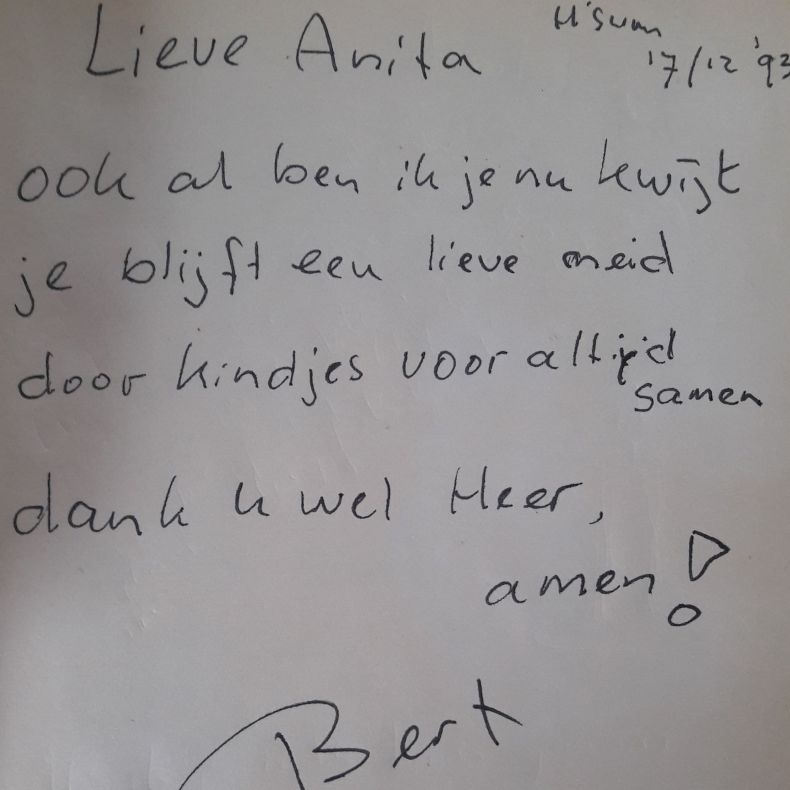 Lieve Anita
H'sum
17/12 '93
ook al ben ik je nu kwijt
je blijft een lieve meid
door kindjes voor altijd
samen
dank u wel Heer,
amen!
Bert